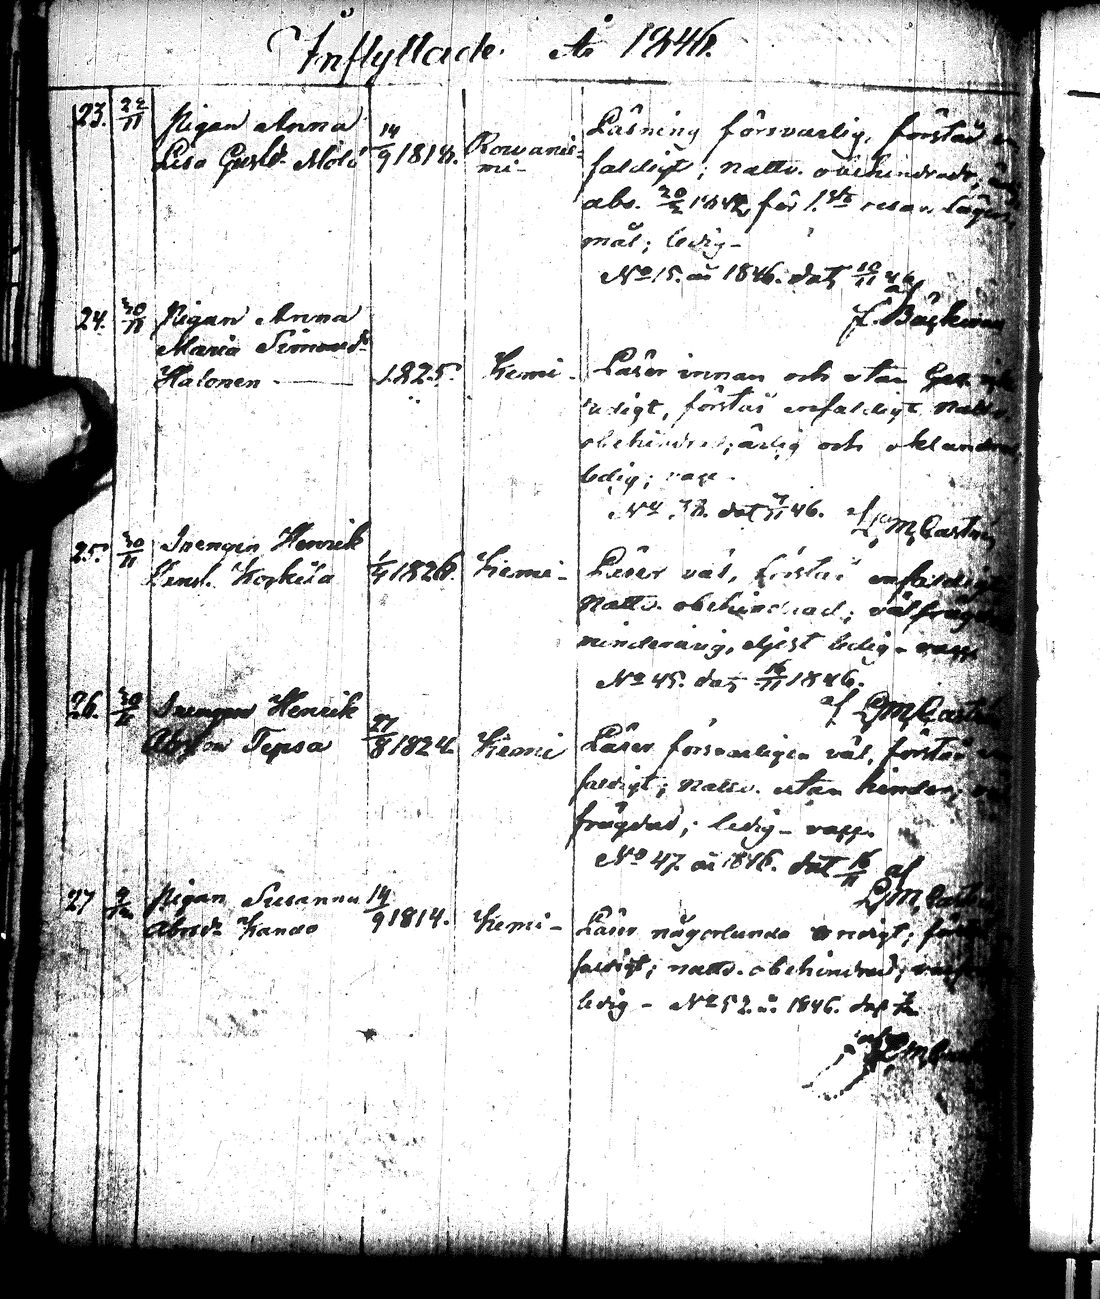 Inflyttade År 1846.
23. 22/11 Pigan Anna
Lisa Gustds 14/9 1818. Rovanie-
mi-
Läsning försvarlig, förstår en-
faldigt; nattv. obehindrad;
abs. 20/2 1842, för 1.sta resan läger-
mål; ledig-
No 15. år 1846. dat 10/11 46
af
24. 30/11 Pigan Anna
Maria Simonsdr
Halonen 1825. Kemi-
Läser innan och utan
förstår enfaldigt nattv.
obehindrad; ärlig och oklandrad
ledig; vacc-
No dat 46. af
L. M. Castrén
25. 30/11 Drengen Henrik
Korkila 1/4 1826. Kemi-
Läser väl, förstår enfaldigt
nattv. obehindrad; välfrägdad
minderårig, ledig- vacc.
No 45. dat 16/11 1846.
af L. M. Castrén
26. 30/11 Drengen Henrik
Tepsa 27/8 1824. Kemi
Läser försvarligen väl, förstår en-
faldigt; nattv. utan hinder; väl
frägdad; ledig- vacc.
No 47. år 1846. dat 16/11 af
L. M. Castrén
27 Pigan Susanna
Abrdr 14/9 1814. Kemi-
Läser någorlunda redigt;
faldigt; nattv. obehindrad;
ledig- No 52. år 1846. dat
L. M. Castrén